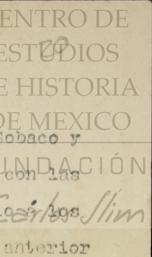 ENTRO DE
ESTUDIOS
E HISTORIA
DE MEXICO
Sobaco y
FUNDACIÓN
con las
Carlos Slim
anterior